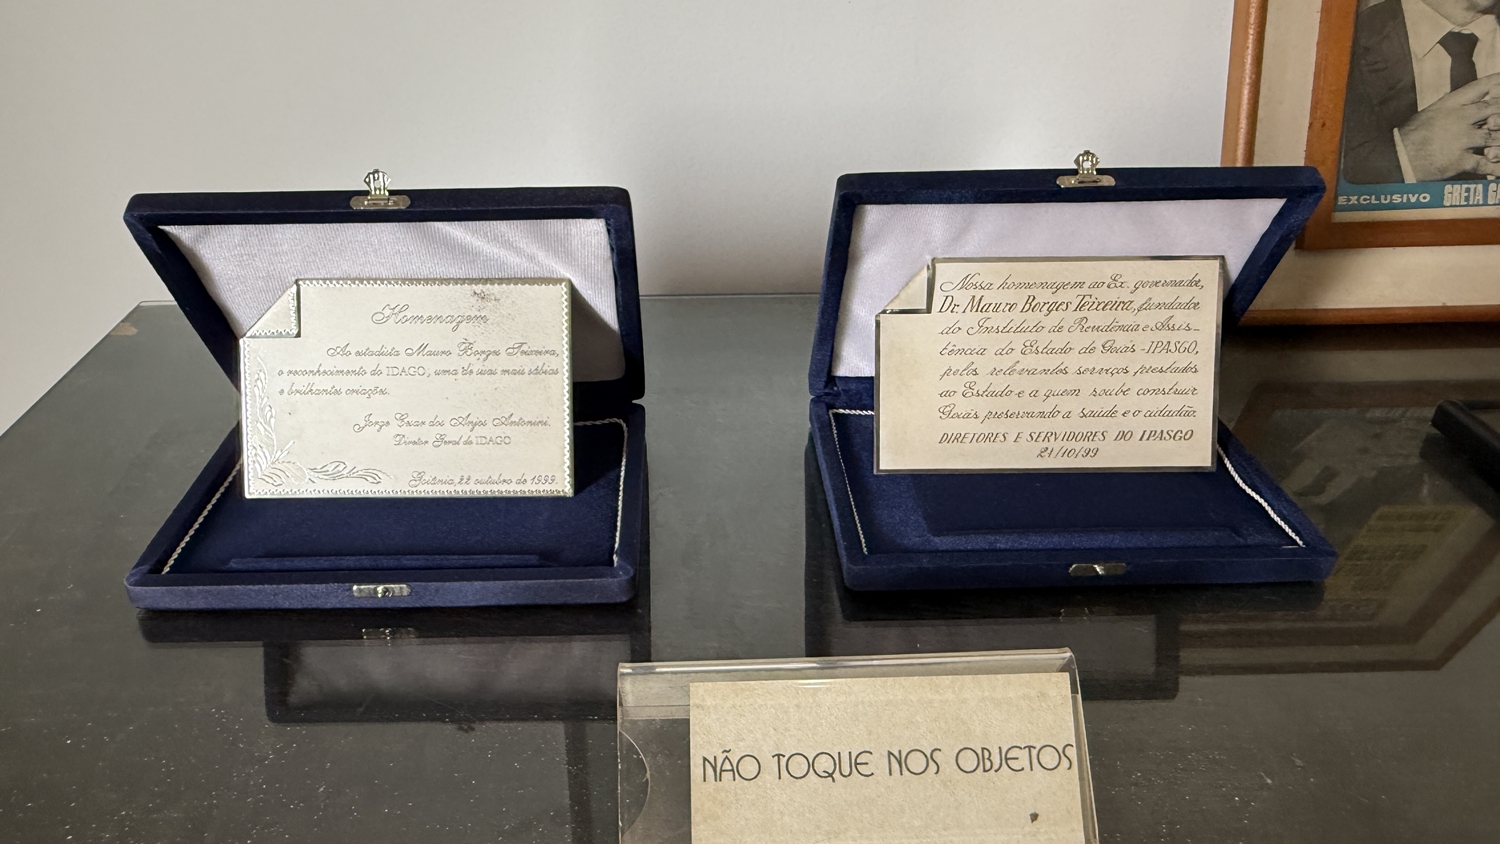 Homenagem
Ao estadista Mauro Borges Teixeira,
o reconhecimento do IDAGO, uma de suas mais sábias
e brilhantes criações.
Jorge Cesar dos Anjos Antonini.
Diretor Geral do IDAGO
Goiânia, 22 outubro de 1999.
Nossa homenagem ao Ex. governador,
Dr. Mauro Borges Teixeira, fundador
do Instituto de Previdência e Assis-
tência do Estado de Goiás - IPASGO,
pelos relevantes serviços prestados
ao Estado e a quem soube construir
Goiás preservando a saúde e o cidadão.
DIRETORES E SERVIDORES DO IPASGO
21/10/99
EXCLUSIVO GRETA
NÃO TOQUE NOS OBJETOS